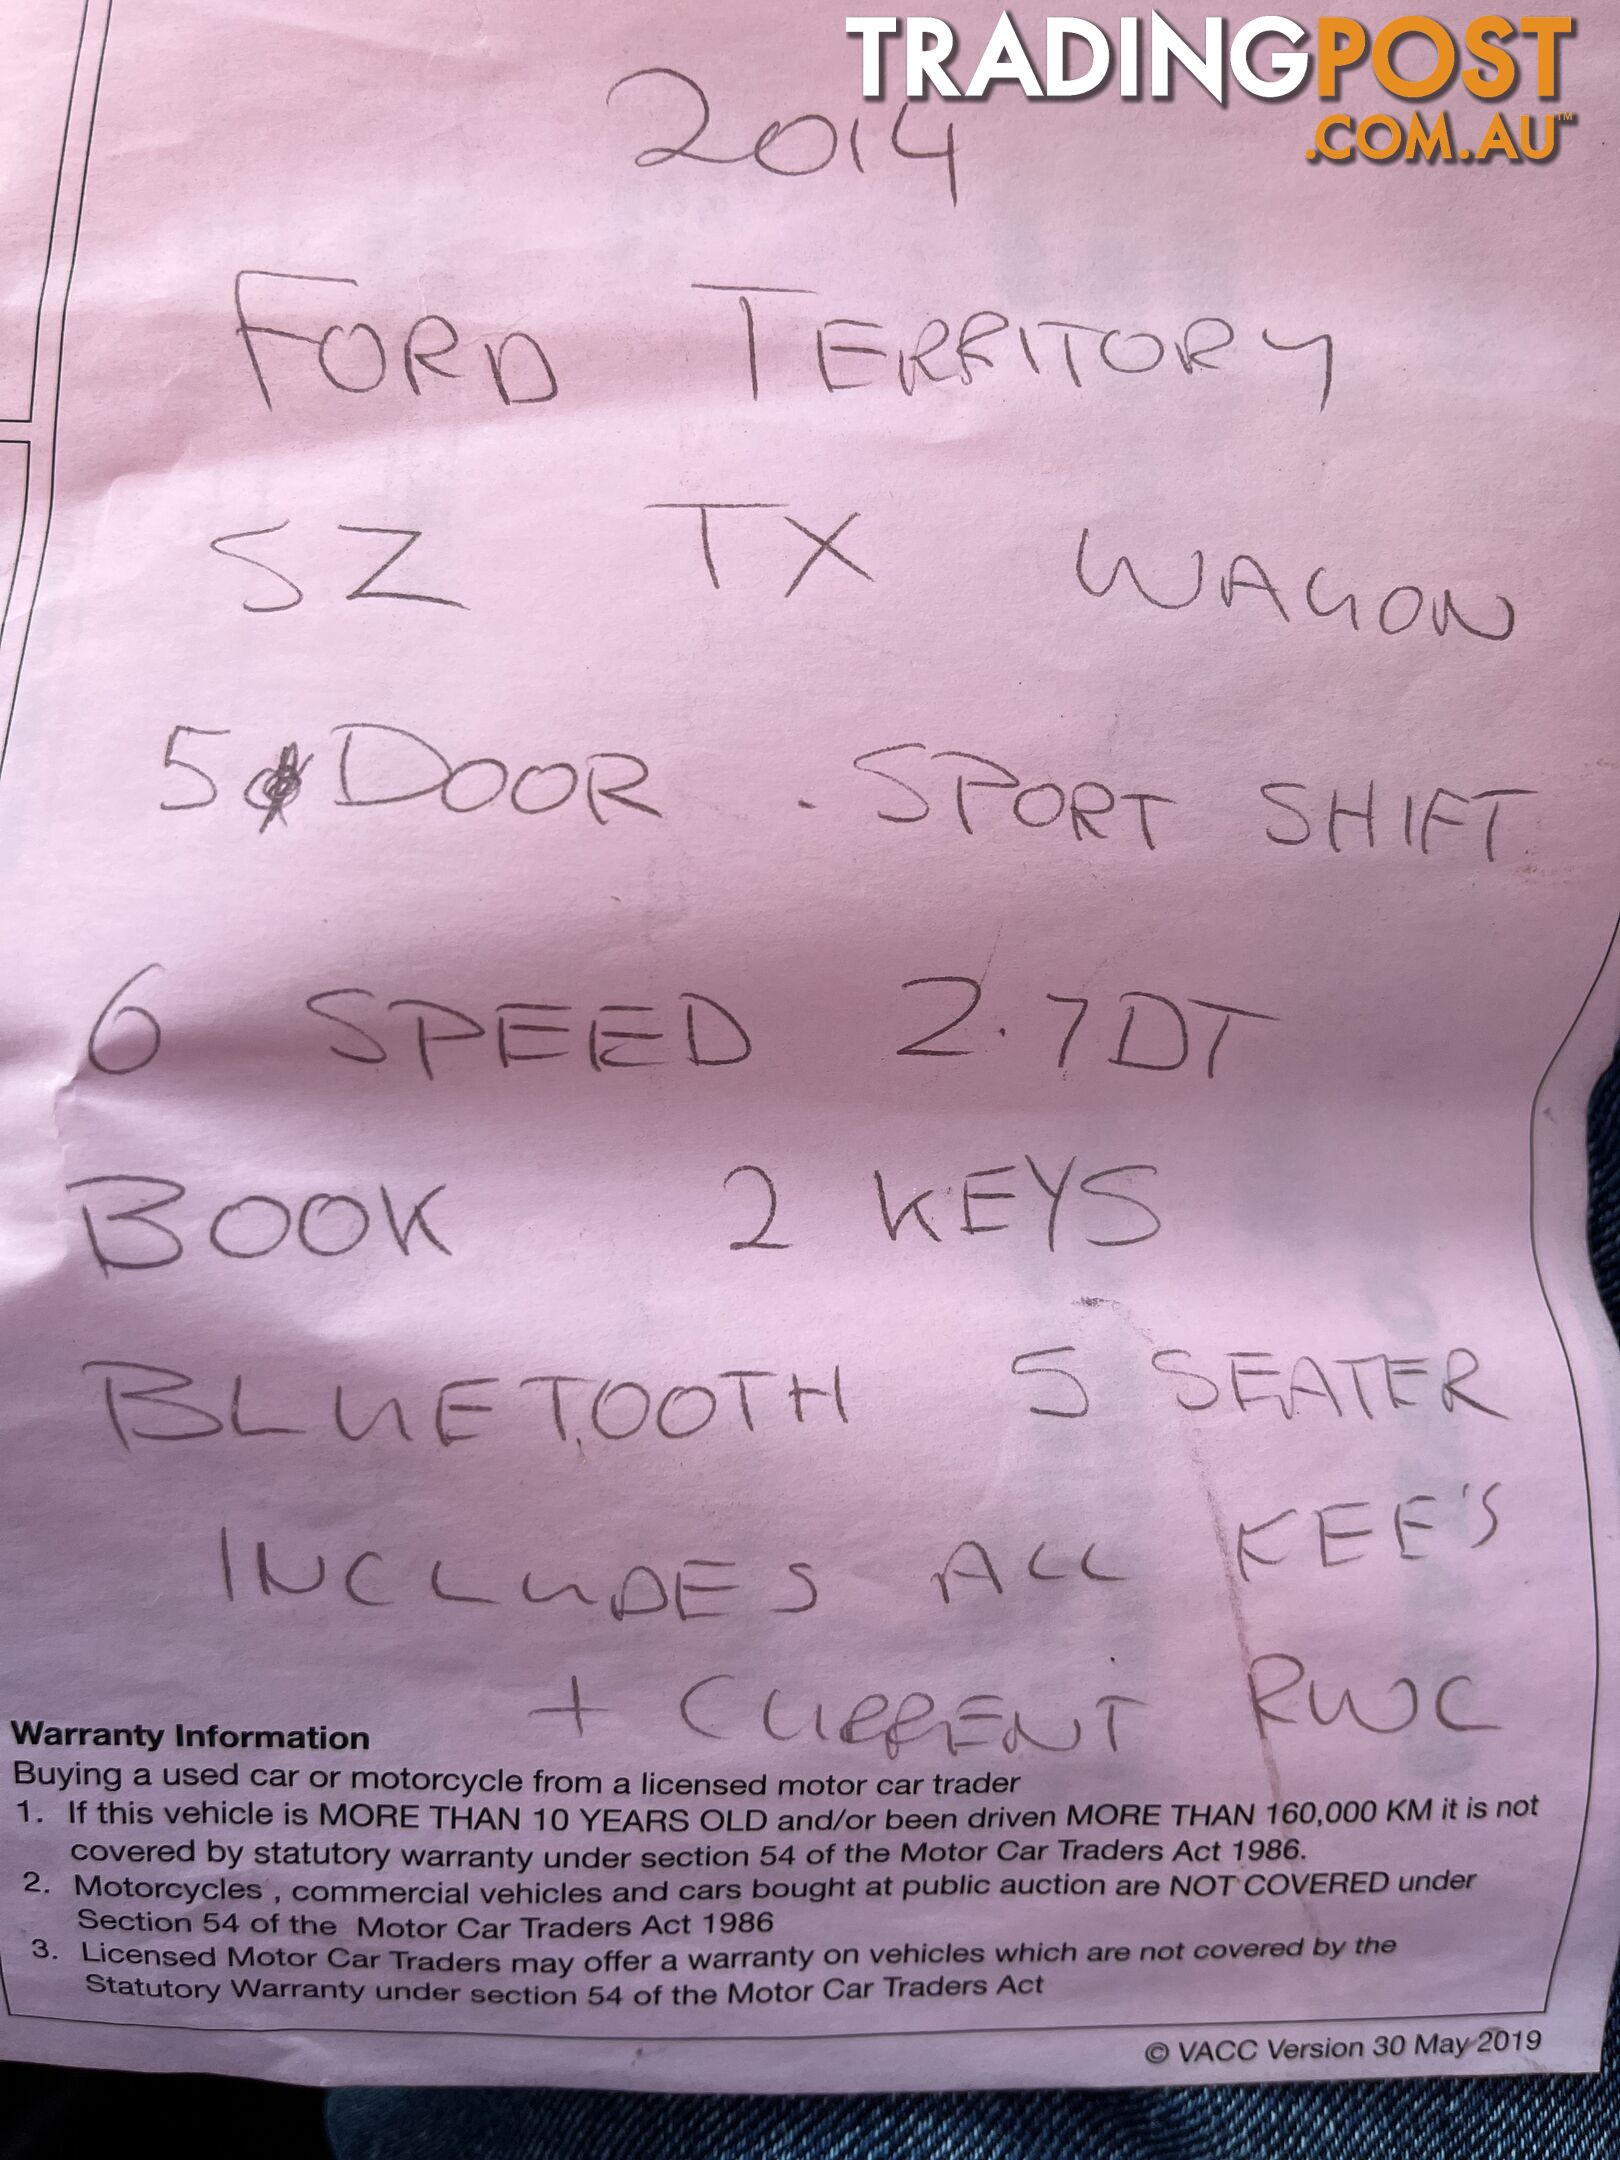 TRADINGPOST
.COM.AU™
2014
FORD TERRITORY
SZ TX WAGON
5 DOOR . SPORT SHIFT
6 SPEED 2.7DT
BOOK 2 KEYS
BLUETOOTH 5 SEATER
INCLUDES ALL KEE'S
+ CURRENT RWC
Warranty Information
Buying a used car or motorcycle from a licensed motor car trader
1. If this vehicle is MORE THAN 10 YEARS OLD and/or been driven MORE THAN 160,000 KM it is not
covered by statutory warranty under section 54 of the Motor Car Traders Act 1986.
2. Motorcycles , commercial vehicles and cars bought at public auction are NOT COVERED under
Section 54 of the Motor Car Traders Act 1986
3. Licensed Motor Car Traders may offer a warranty on vehicles which are not covered by the
Statutory Warranty under section 54 of the Motor Car Traders Act
© VACC Version 30 May 2019